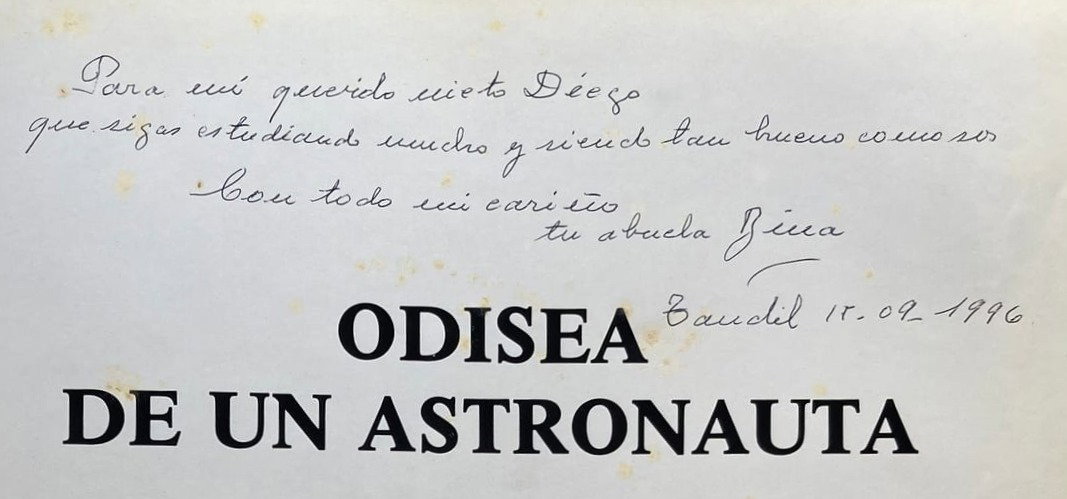 Para mi querido nieto Diego
que sigas estudiando mucho y siendo tan bueno como sos
Con todo mi cariño
tu abuela Bina
Tandil 15-09-1996
ODISEA
DE UN ASTRONAUTA